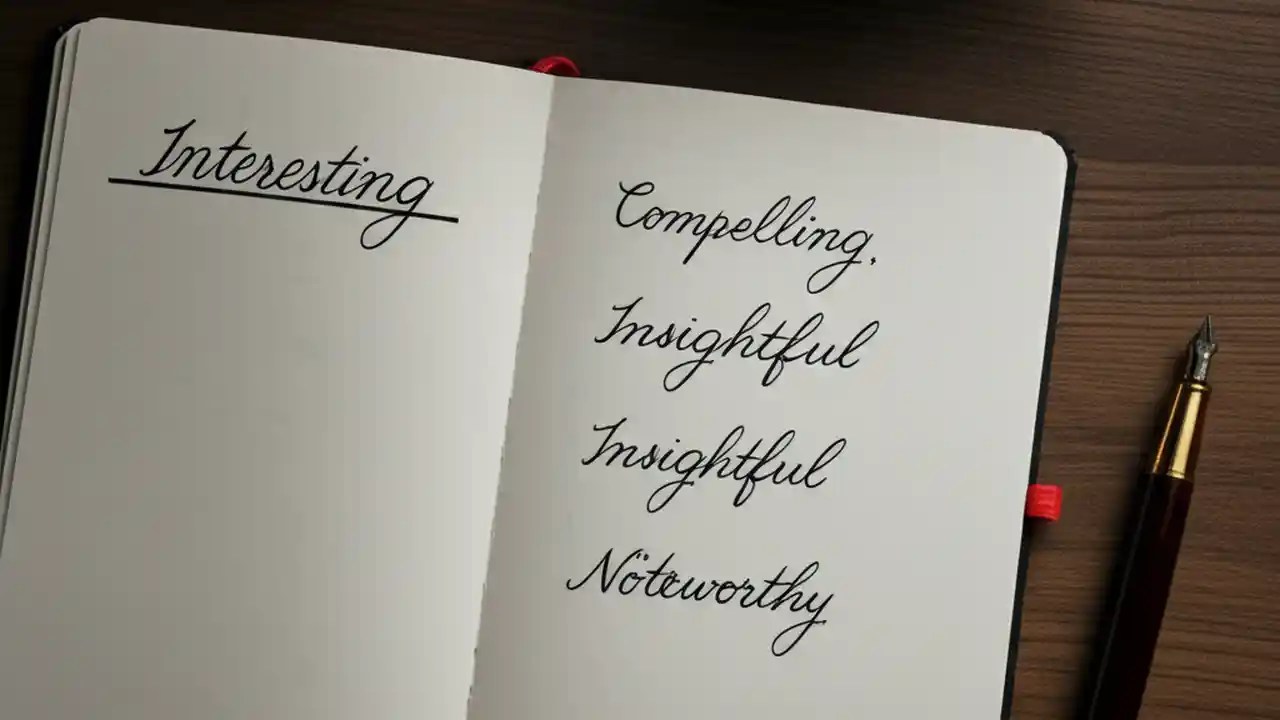 Interesting
Compelling.
Insightful
Insightful
Nöteworthy